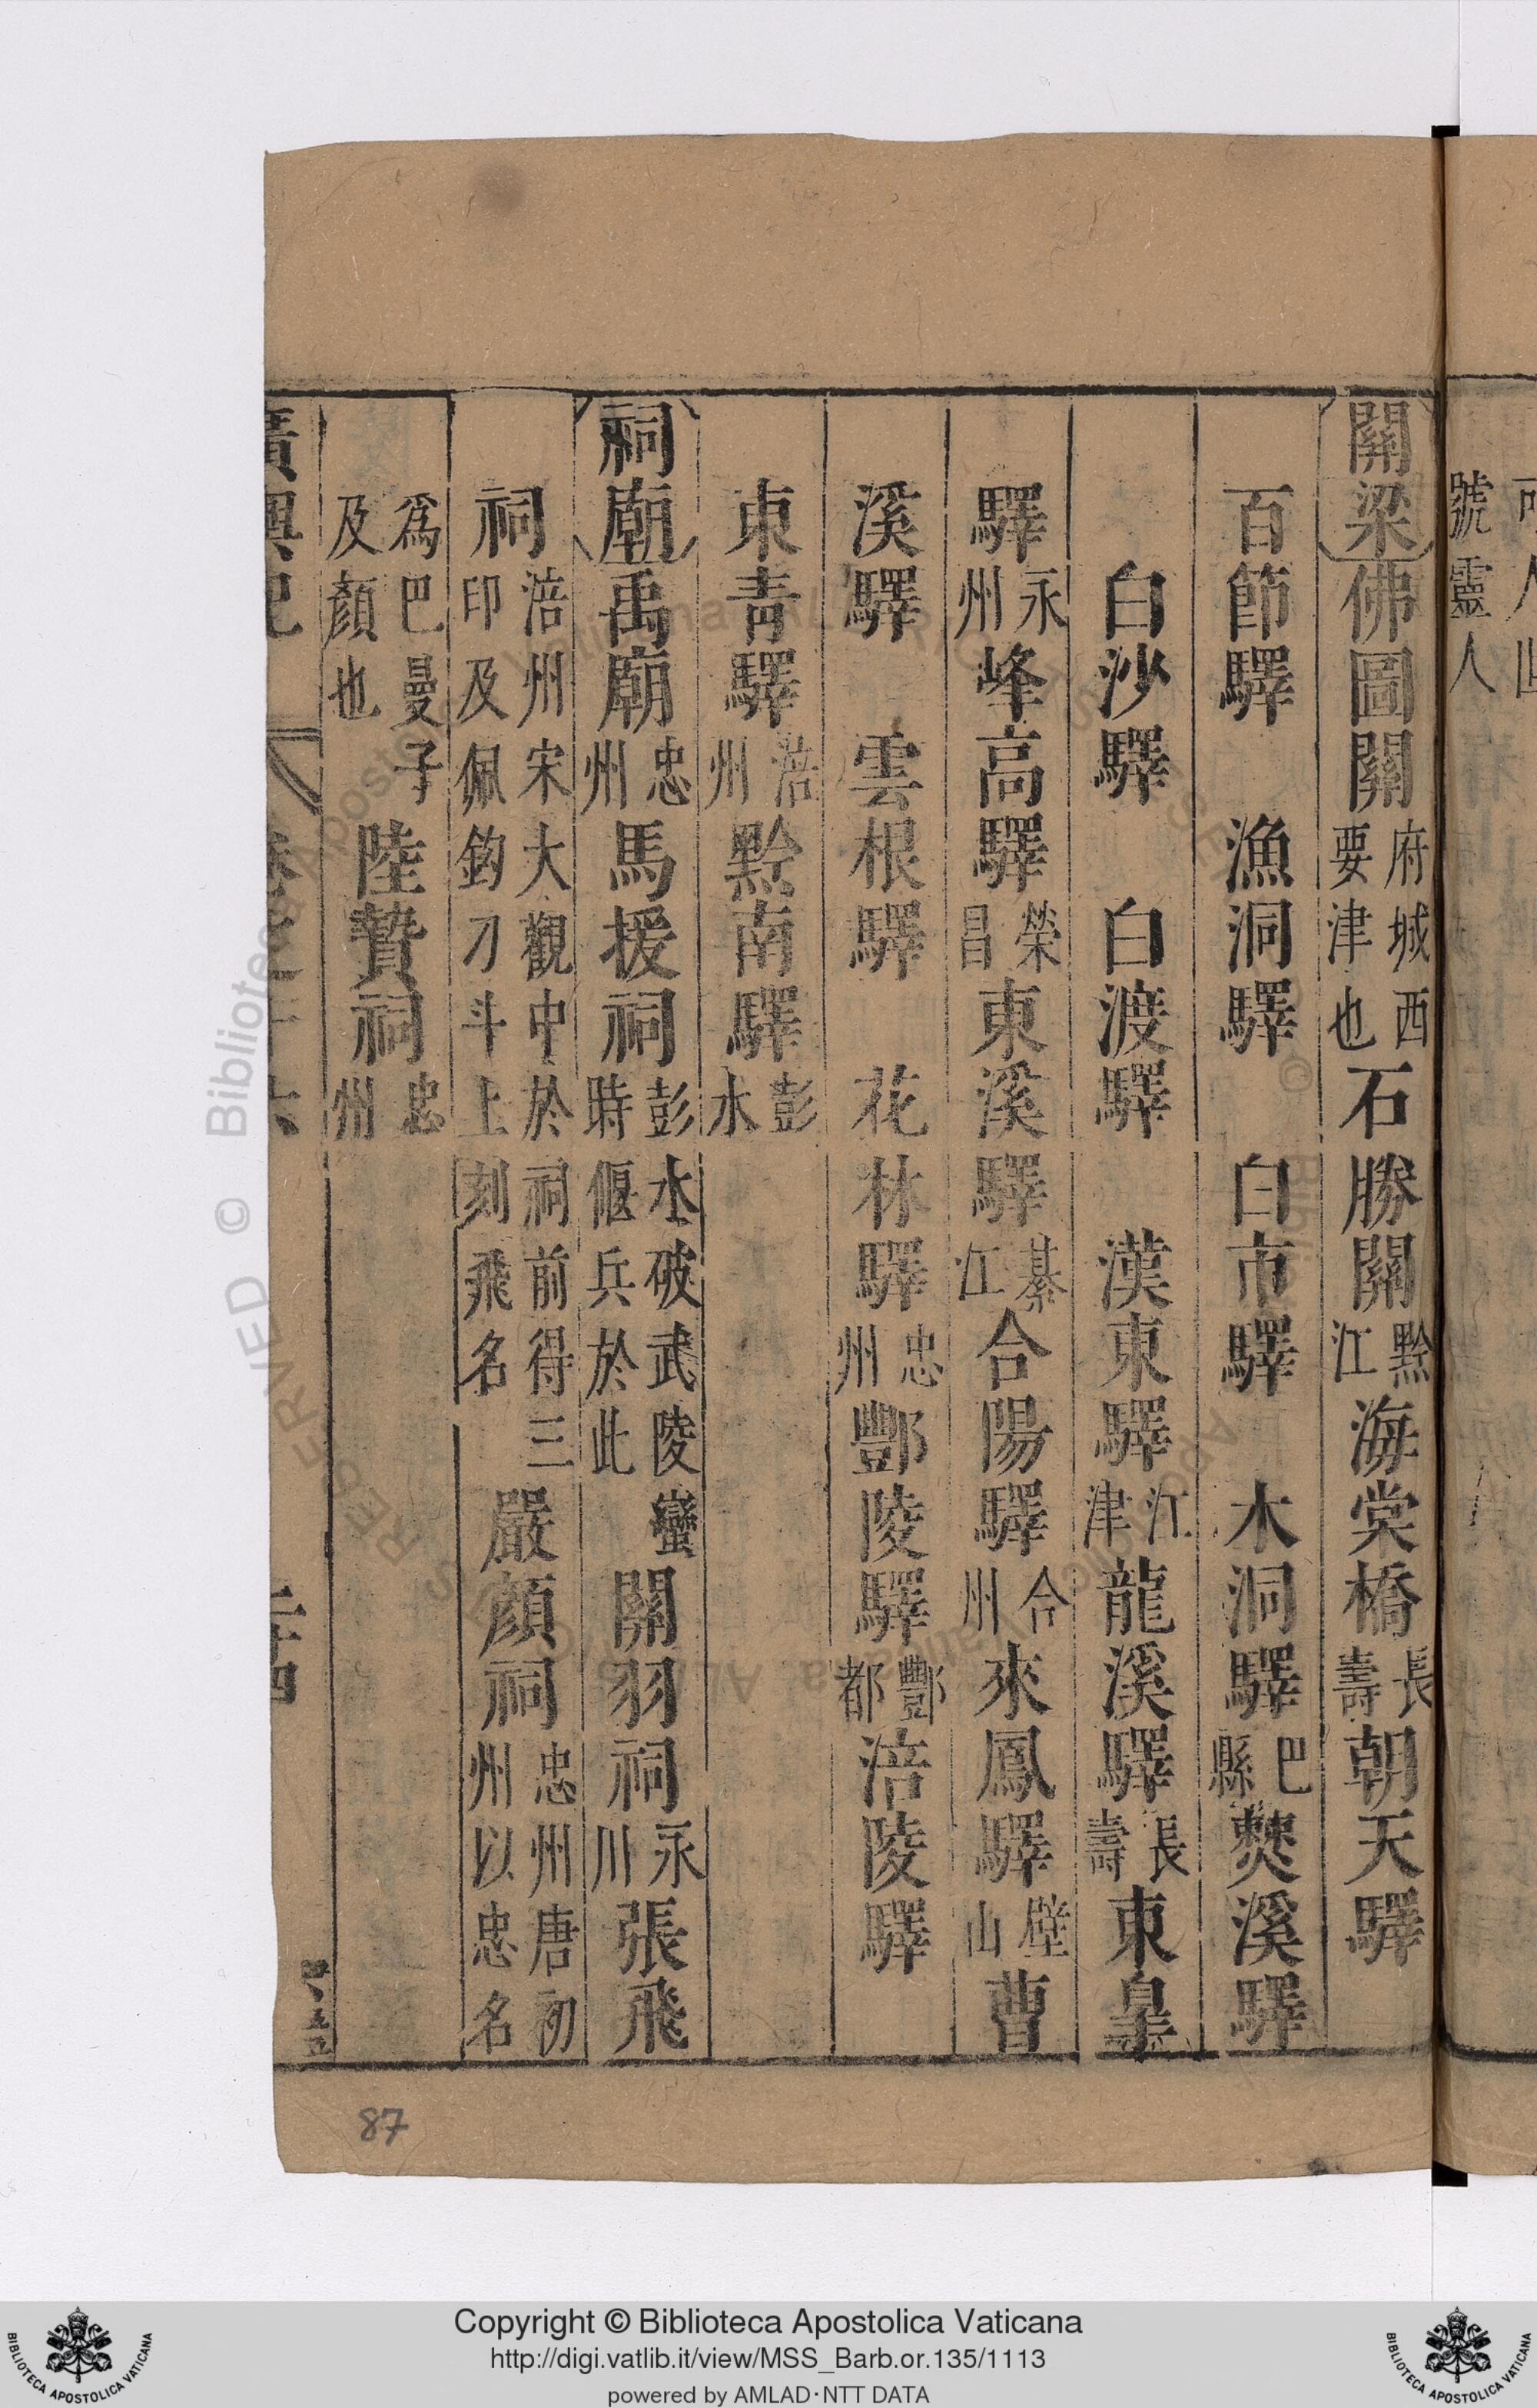 號靈人
關梁佛圖關府城西要津也石勝關黔江海棠橋長壽朝天驛
百節驛 漁洞驛 白市驛 木洞驛巴縣僰溪驛
白沙驛 白渡驛 漢東驛江津龍溪驛長壽東皇
驛永州峰高驛榮昌東溪驛綦江合陽驛合州來鳳驛壁山曹
溪驛 雲根驛 花林驛忠州酆陵驛酆都涪陵驛
東青驛涪州黔南驛彭水
祠廟禹廟忠州馬援祠彭水破武陵蠻時偃兵於此關羽祠永川張飛
祠涪州宋大觀中於祠前得三印及佩鈎刁斗上刻飛名嚴顏祠忠州唐初州以忠名
爲巴曼子及顏也陸贄祠忠州
廣輿記
四、五
87
Copyright © Biblioteca Apostolica Vaticana
http://digi.vatlib.it/view/MSS_Barb.or.135/1113
powered by AMLAD·NTT DATA
BIBLIOTECA APOSTOLICA VATICANA
BIBLIOTECA APOSTOLICA VATICANA